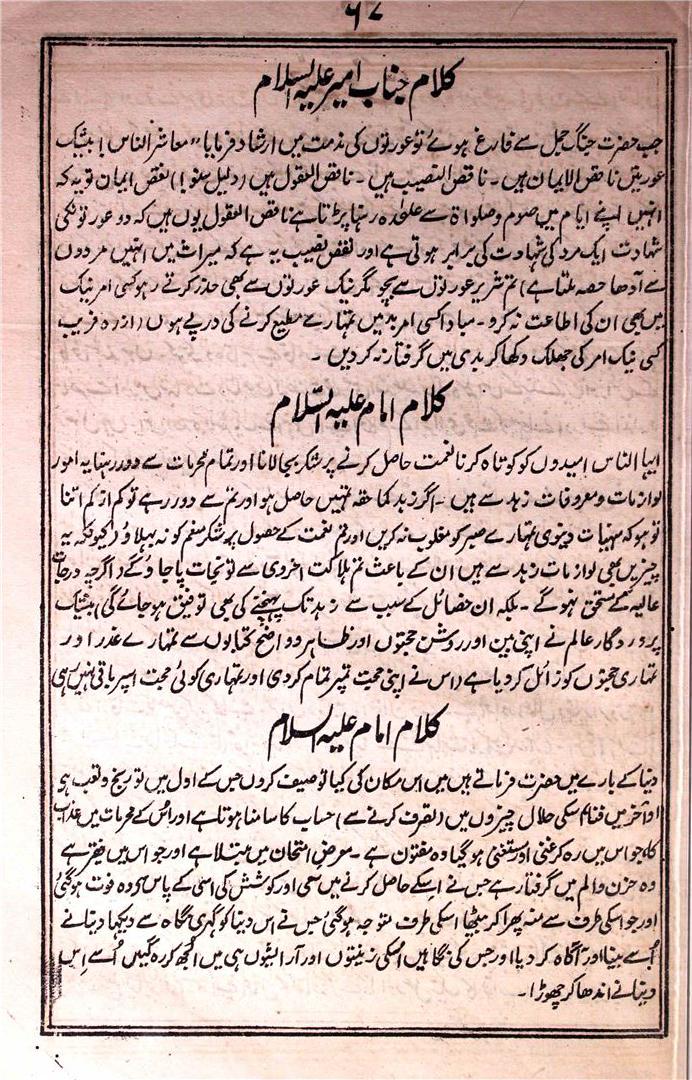 ۶۷
کلام جناب امیر علیہ السلام
جب حضرت جنگ جمل سے فارغ ہوئے تو عورتوں کی مذمت میں ارشاد فرمایا ”معاشر الناس! بیشک
عورتیں ناقص الایمان ہیں۔ ناقص النصیب ہیں۔ ناقص العقول ہیں (دلیل سنو!) نقص ایمان تو یہ کہ
انہیں اپنے ایام میں صوم و صلواۃ سے علٰحدہ رہنا پڑتا ہے ناقص العقول یوں ہیں کہ دو عورتونکی
شہادت ایک مرد کی شہادت کی برابر ہوتی ہے اور نقص نصیب یہ ہے کہ میراث میں انہیں مردوں
سے آدھا حصہ ملتا ہے) تم شریر عورتوں سے بچو مگر نیک عورتوں سے بھی حذر کرتے رہو کسی امر نیک
میں بھی ان کی اطاعت نہ کرو۔ مبادا کسی امر بد میں تمہارے مطیع کرنے کی درپے ہوں (از رہ فریب
کسی نیک امر کی جھلک دکھا کر بدی میں گرفتار نہ کر دیں۔
کلام امام علیہ السّلام
ایہا الناس امیدوں کو کوتاہ کرنا نعمت حاصل کرنے پر شکر بجا لانا اور تمام محرمات سے دور رہنا یہ امور
لوازمات و معروفات زہد سے ہیں۔ اگر زہد کما حقہ تمہیں حاصل ہو اور تم سے دور رہے تو کم از کم اتنا
تو ہو کہ منہیات دینوی تمہارے صبر کو مغلوب نہ کریں اور تم نعمت کے حصول پر شکر منعم کو نہ بہلاؤ (کیونکہ یہ
چیزیں بھی لوازمات زہد سے ہیں ان کے باعث تم ہلاکت اخروی سے تو نجات پا جاؤ گے (اگرچہ درجات
عالیہ کے مستحق نہو گے۔ بلکہ ان خصائل کے سبب سے زہد تک پہنچنے کی بھی توفیق ہو جائے گی) بیشک
پروردگار عالم نے اپنی بین اور روشن حجتوں اور ظاہر و واضح کتابوں سے تمہارے عذر اور
تمہاری حجتوں کو زائل کر دیا ہے (اس نے اپنی حجت تمپر تمام کر دی اور تمہاری کوئی حجت اسپر باقی نہیں رہی
کلام امام علیہ السلام
دنیا کے بارے میں حضرت فرماتے ہیں میں اس مکان کی کیا توصیف کروں جس کے اول میں تو رنج و تعب ہی
اور آخر میں فنا۔ اسکی حلال چیزوں میں (تصرف کرنے سے) حساب کا سامنا ہوتا ہے اور اس کے محرمات میں عذاب
کا۔ جو اس میں رہ کر غنی اور مستغنی ہو گیا وہ مفتون ہے۔ معرض امتحان میں مبتلا ہے اور جو اس میں فقیر ہے
وہ حزن و الم میں گرفتار ہے جس نے اسکے حاصل کرنے میں سعی اور کوشش کی اسی کے پاس سی وہ فوت ہو گئی
اور جو اسکی طرف سے منہ پھرا کر بیٹھا اسکی طرف متوجہ ہو گئی جس نے اس دنیا کو گہری نگاہ سے دیکھا دنیا نے
اُسے بینا اور آگاہ کر دیا اور جس کی نگاہیں اسکی زینتوں اور آرائشوں ہی میں الجھ کر رہ گئیں اُسے اِس
دنیا نے اندھا کر چھوڑا۔